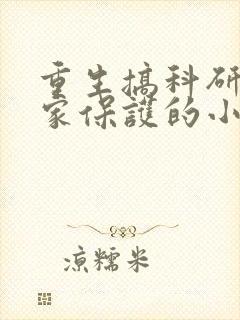 重生搞科研
家保護的小
涼糯米